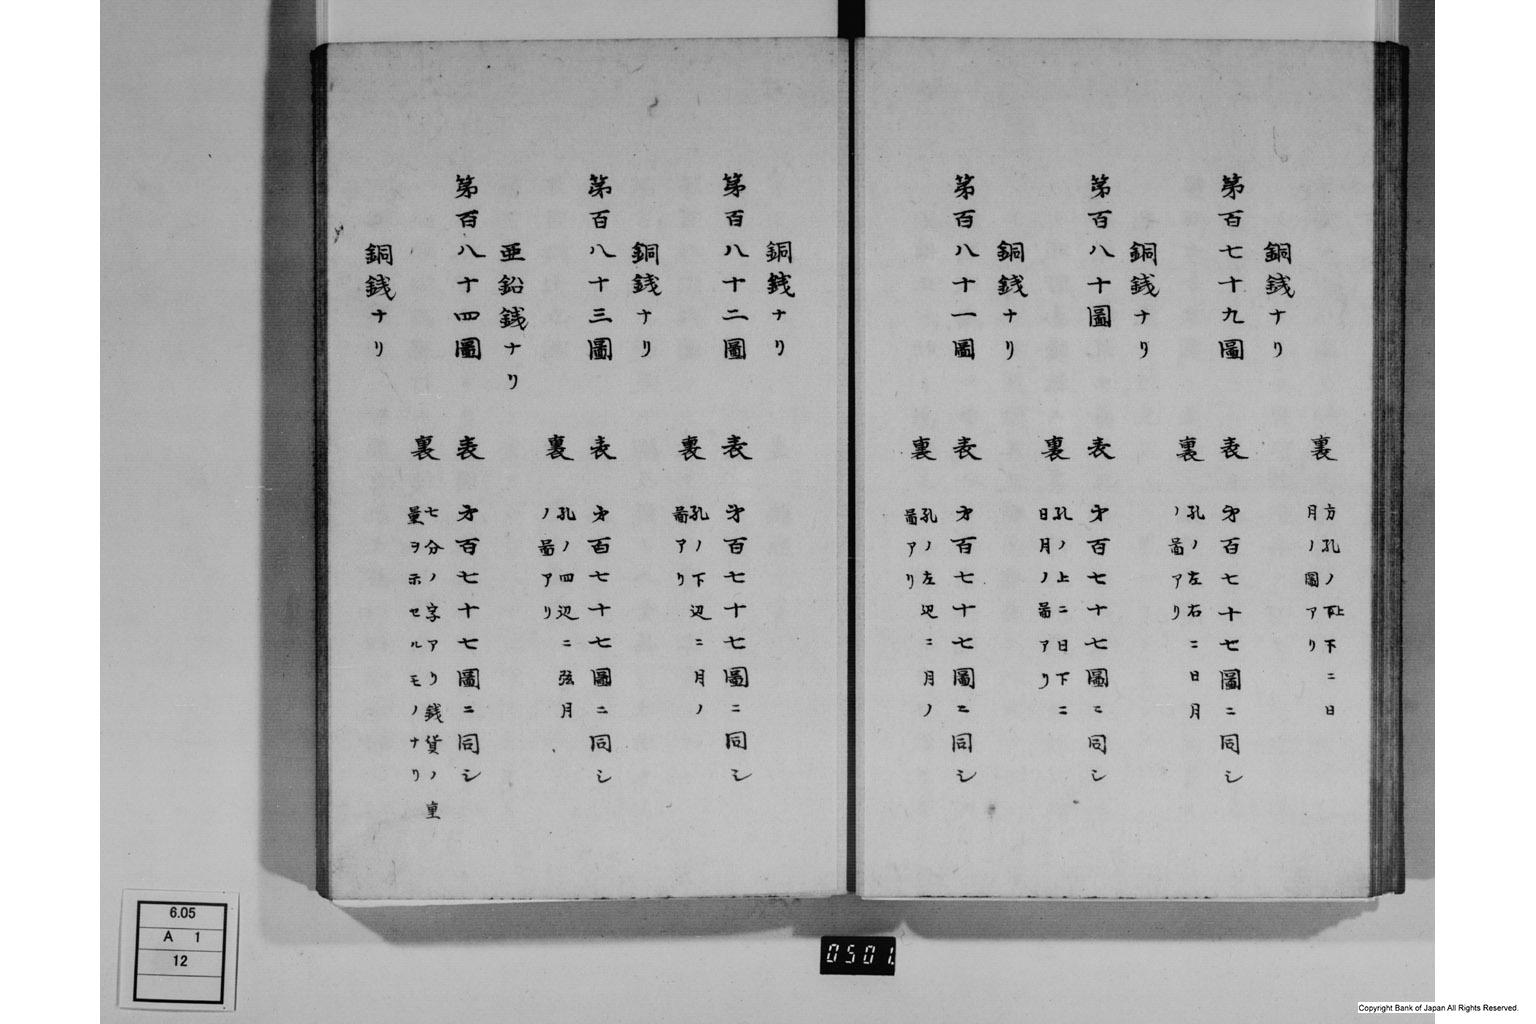 裏 方孔ノ上下ニ日
月ノ圖アリ
銅銭ナリ
第百七十九圖 表 才百七十七圖ニ同シ
裏 孔ノ左右ニ日月
ノ啚アリ
銅銭ナリ
第百八十圖 表 才百七十七圖ニ同シ
裏 孔ノ上ニ日下ニ
日月ノ啚アリ
銅銭ナリ
第百八十一圖 表 才百七十七圖ニ同シ
裏 孔ノ左辺ニ月ノ
啚アリ
銅銭ナリ
第百八十二圖 表 才百七十七圖ニ同シ
裏 孔ノ下辺ニ月ノ
啚アリ
銅銭ナリ
第百八十三圖 表 才百七十七圖ニ同シ
裏 孔ノ四辺ニ弦月
ノ啚アリ
亜鉛銭ナリ
第百八十四圖 表 才百七十七圖ニ同シ
裏 七分ノ字アリ銭貨ノ重
量ヲ示セルモノナリ
銅銭ナリ
6.05
A 1
12
0501
Copyright Bank of Japan All Rights Reserved.